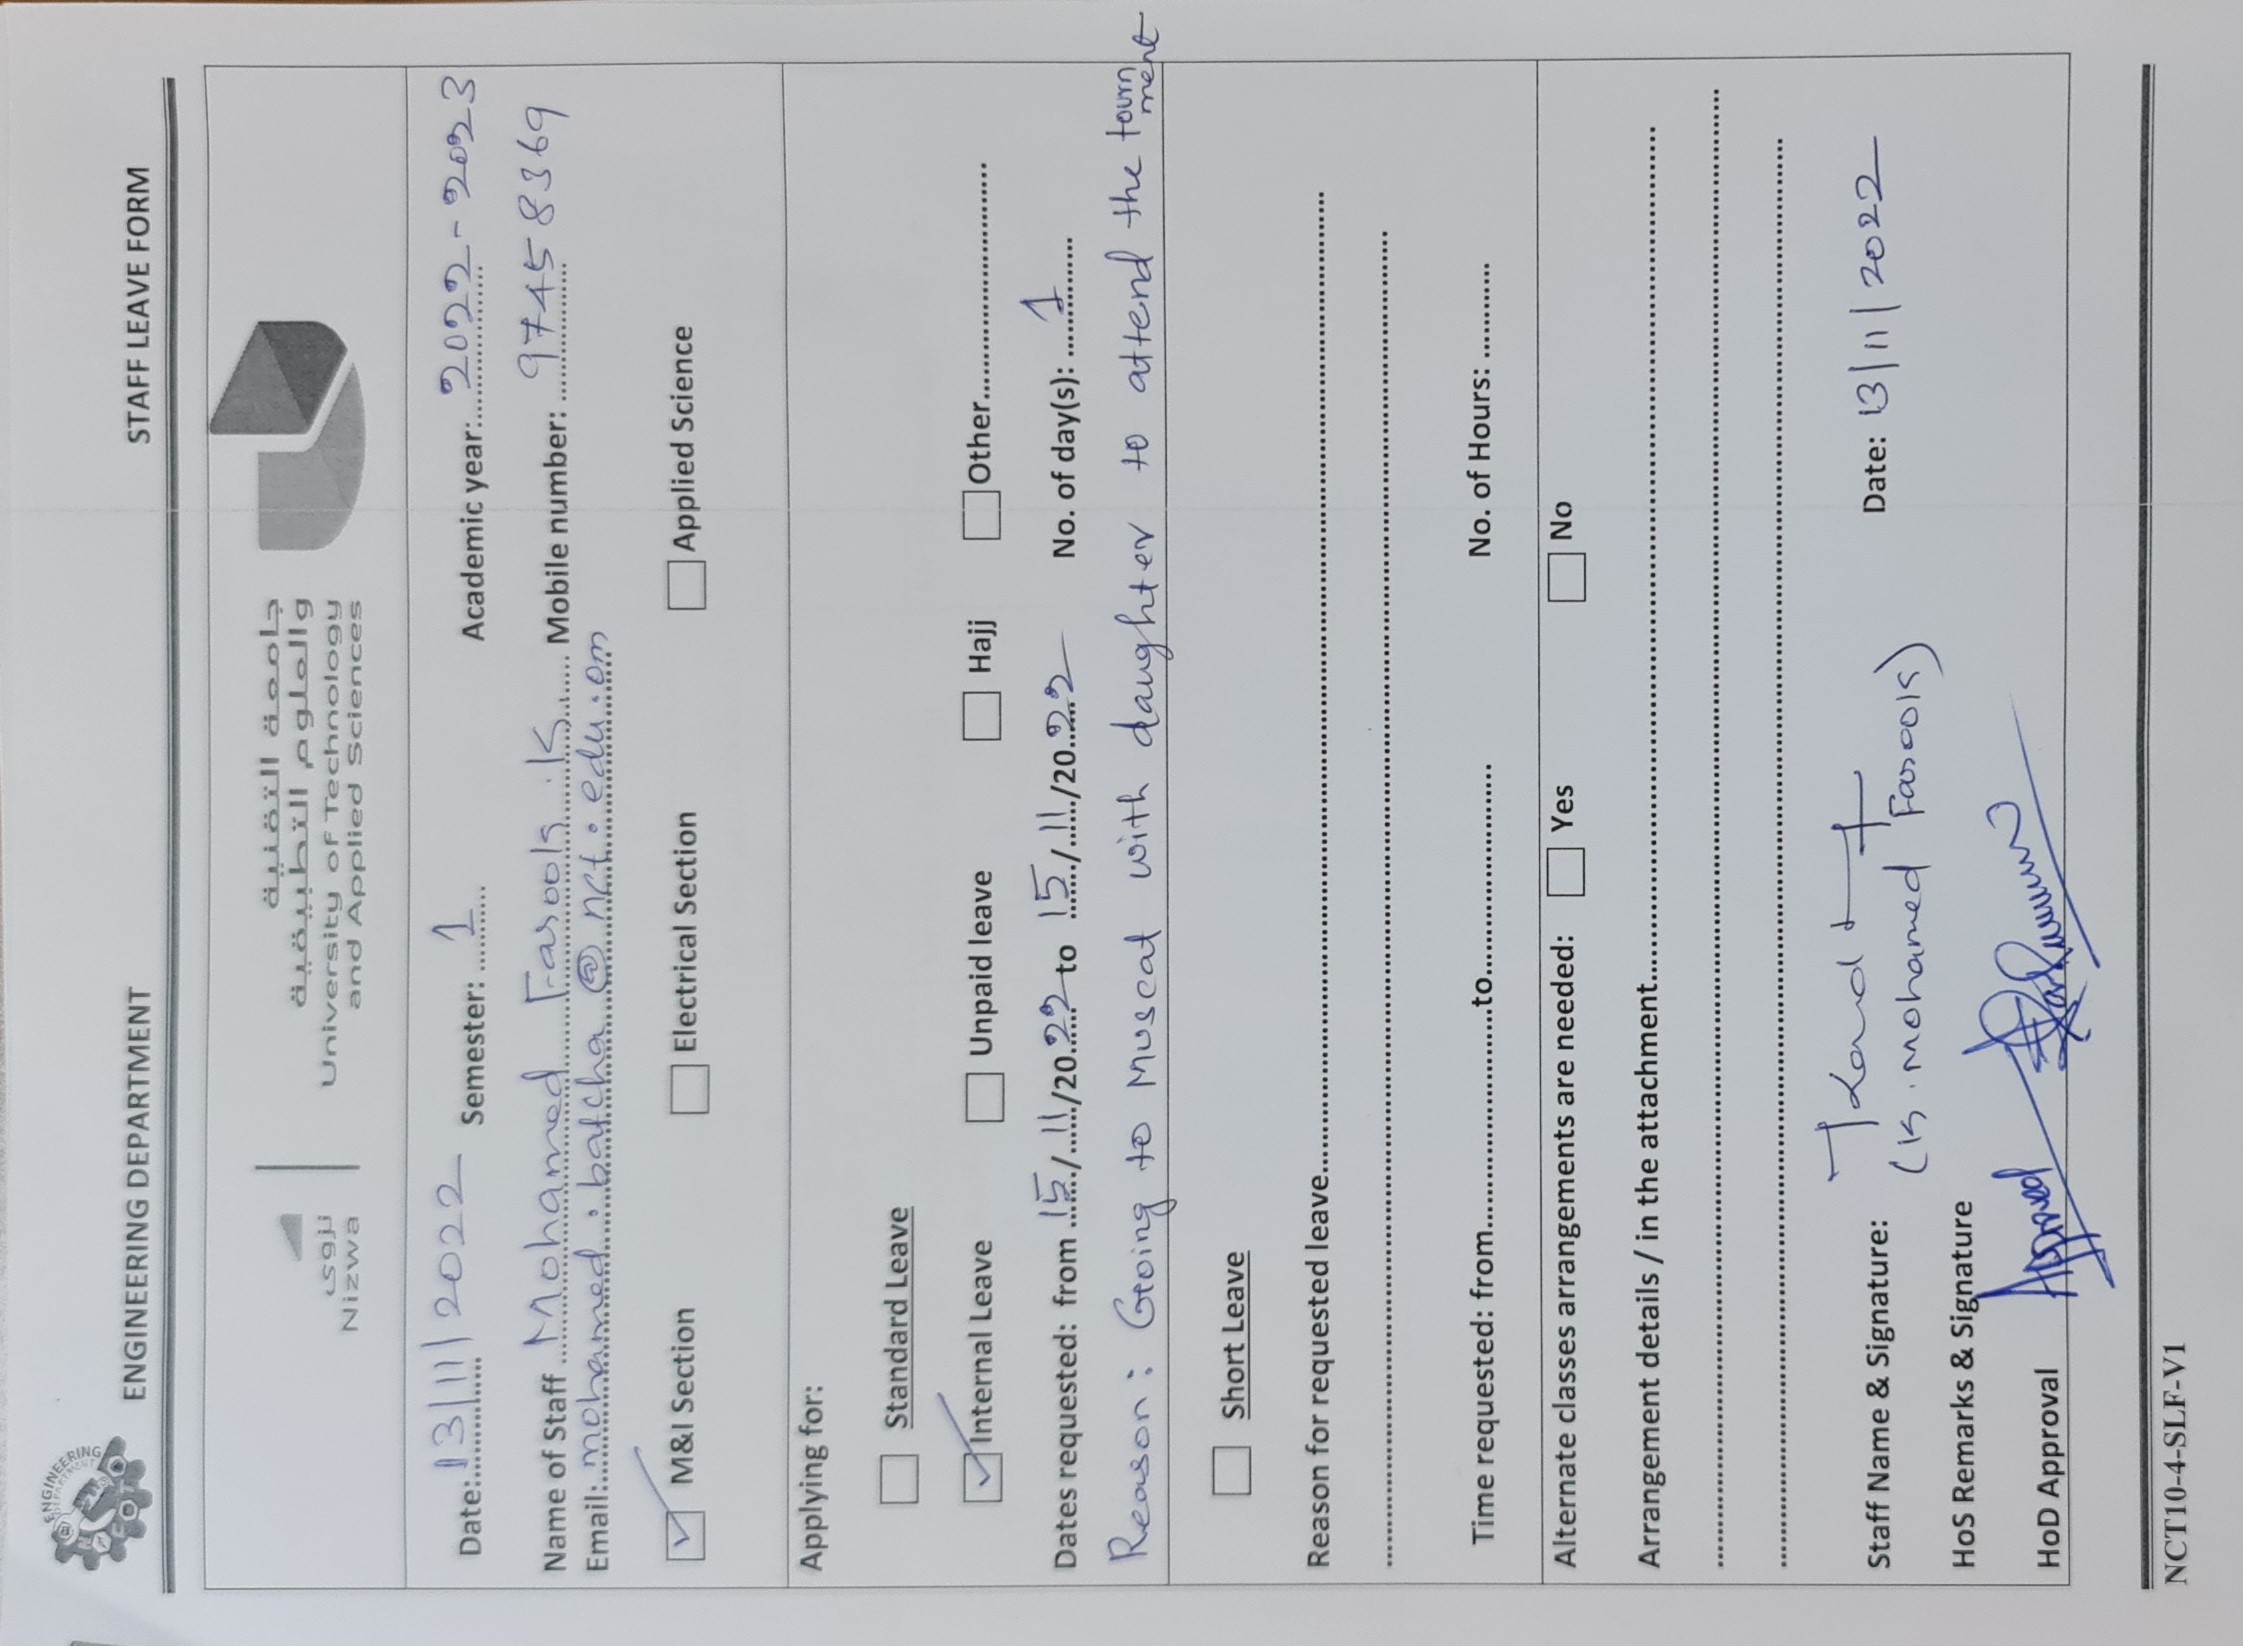 ENGINEERING DEPARTMENT
ENGINEERING DEPARTMENT STAFF LEAVE FORM
جامعة التقنية
والعلوم التطبيقية
University of Technology
and Applied Sciences
نزوى
Nizwa
Date: 13/11/2022 Semester: 1 Academic year: 2022-2023
Name of Staff Mohamed Farook .K Mobile number: 97458369
Email: mohamed.batcha@nct.edu.om
M&I Section Electrical Section Applied Science
Applying for:
Standard Leave
Internal Leave Unpaid leave Hajj Other...........................
Dates requested: from 15/11/2022 to 15/11/2022 No. of day(s): 1
Reason: Going to Muscat with daughter to attend the tourn
ment
Short Leave
Reason for requested leave..........................................................
Time requested: from..........................to......................... No. of Hours: ............
Alternate classes arrangements are needed: Yes No
Arrangement details / in the attachment..........................................................
Staff Name & Signature: Date: 13/11/2022
(K. Mohamed Farook)
HoS Remarks & Signature
HoD Approval Approved
NCT10-4-SLF-V1